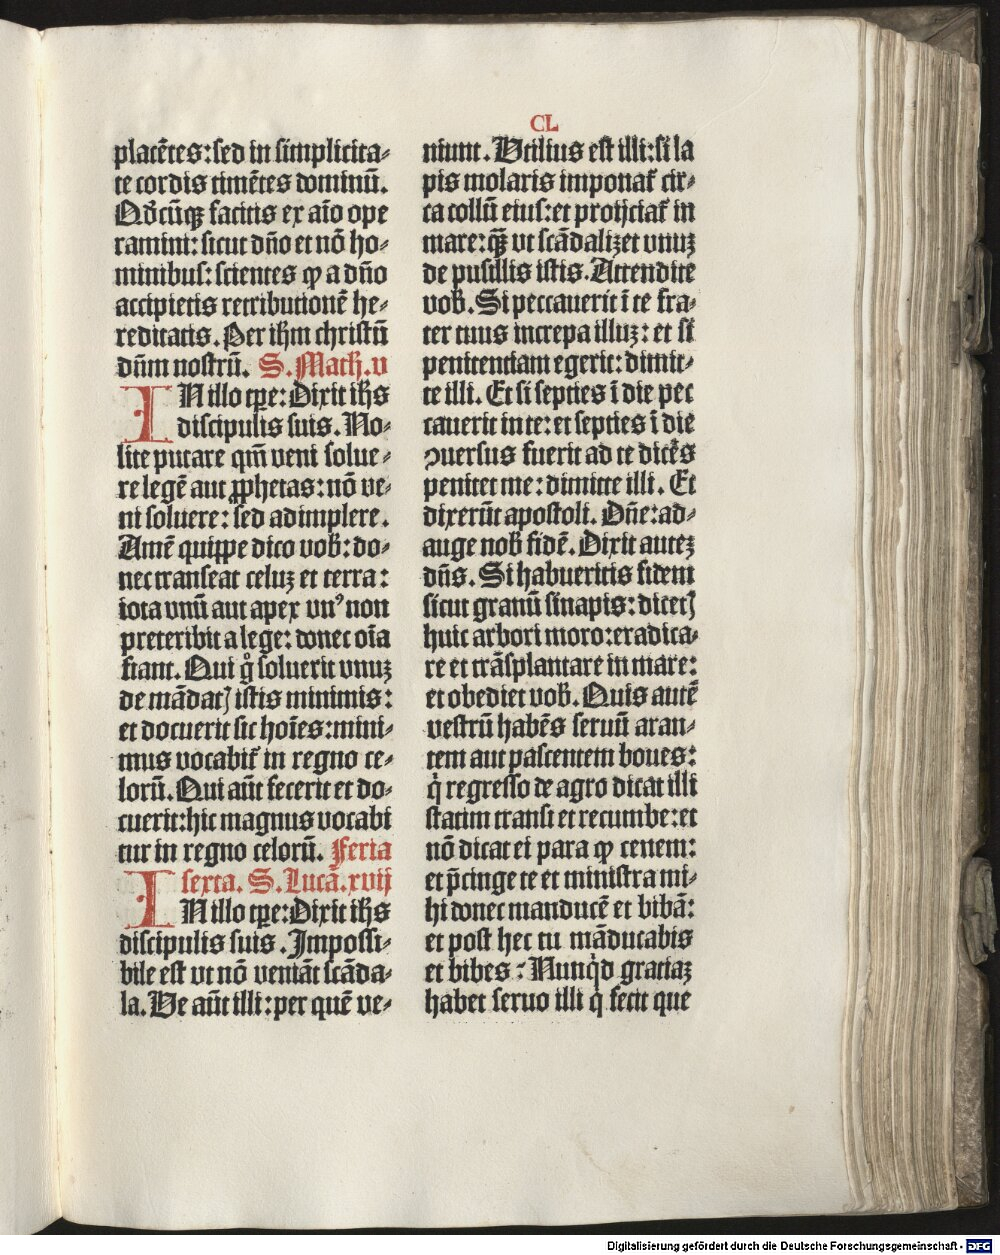 CL
placētes: sed in simplicita⸗
te cordis timētes dominū.
Qd̕cūqꝫ facitis ex aīo ope
ramini: sicut dn̄o et nō ho⸗
minibus: scientes ꝙ a dn̄o
accipietis retributionē he⸗
reditatis. Per ihm̄ christū
dn̄m nostrū. S. Math. v
IN illo tꝑe: Dixit ihs̄
discipulis suis. No⸗
lite putare qm̄ veni solue⸗
re legē aut ꝓphetas: nō ve⸗
ni soluere: sed adimplere.
Amē quippe dico vob̕: do⸗
nec transeat celuꝫ et terra:
iota vnū aut apex vnꝰ non
preteribit a lege: donec oīa
fiant. Qui gͦ soluerit vnuꝫ
de mādatꝭ istis minimis:
et docuerit sic hoīes: mini⸗
mus vocabit᷑ in regno ce⸗
lorū. Qui aūt fecerit et do⸗
cuerit: hic magnus vocabi
tur in regno celorū. Feria
sexta. S. Lucā. xvij
IN illo tꝑe: Dixit ihs̄
discipulis suis. Impossi⸗
bile est vt nō veniāt scāda⸗
la. Ve aūt illi: per quē ve⸗
niunt. Vtilius est illi: si la
pis molaris imponat᷑ cir⸗
ca collū eius: et proijciat᷑ in
mare: qꝫ̄ vt scādalizet vnuꝫ
de pusillis istis. Attendite
vob̕. Si peccauerit ī te fra⸗
ter tuus increpa illuꝫ: et si
penitentiam egerit: dimit⸗
te illi. Et si septies ī die pec
cauerit in te: et septies ī die
ꝯuersus fuerit ad te dicēs
penitet me: dimitte illi. Et
dixerūt apostoli. Dn̄e: ad⸗
auge nob̕ fidē. Dixit auteꝫ
dn̄s. Si habueritis fidem
sicut granū sinapis: dicetꝭ
huic arbori moro: eradica⸗
re et trāsplantare in mare:
et obediet vob̕. Quis autē
vestrū habēs seruū aran⸗
tem aut pascentem boues:
qͥ regresso de agro dicat illi
statim transi et recumbe: et
nō dicat ei para ꝙ cenem:
et p̄cinge te et ministra mi⸗
hi donec manducē et bibā:
et post hec tu māducabis
et bibes: Nunqͥd gratiaꝫ
habet seruo illi qͥ fecit que
Digitalisierung gefördert durch die Deutsche Forschungsgemeinschaft - DFG